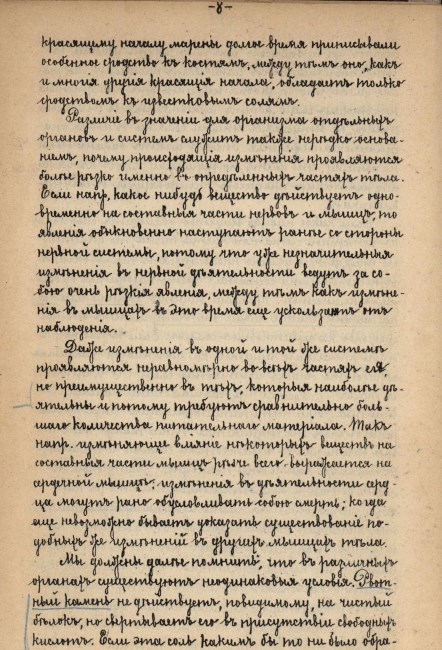 -8-
красящему началу марены долгое время приписывали
особенное сродство къ костямъ, между тѣмъ оно, какъ
и многія другія красящія начала, обладаетъ только
сродствомъ къ известковымъ солямъ.
Различіе въ значеніи для организма отдѣльныхъ
органовъ и системъ служитъ также нерѣдко основа-
ніемъ, почему происходящія измѣненія проявляются
болѣе рѣзко именно въ опредѣленныхъ частяхъ тѣла.
Если напр. какое нибудь вещество дѣйствуетъ одно-
временно на составныя части нервовъ и мышцъ, то
явленія обыкновенно наступаютъ ранѣе со стороны
нервной системы, потому, что уже незначительныя
измѣненія въ нервной дѣятельности ведутъ за со-
бою очень рѣзкія явленія, между тѣмъ какъ измѣне-
нія въ мышцахъ въ это время еще ускользаютъ отъ
наблюденія.
Даже измѣненія въ одной и той же системѣ
проявляются неравномѣрно во всѣхъ частяхъ ея,
но преимущественно въ тѣхъ, которыя наиболѣе дѣ-
ятельны и потому требуютъ сравнительно боль-
шаго количества питательнаго матеріала. Такъ
напр. измѣняющее вліяніе нѣкоторыхъ веществъ на
составныя части мышцъ рѣзче всего выражается на
сердечной мышцѣ; измѣненія въ дѣятельности серд-
ца могутъ рано обусловливать собою смерть, когда
еще невозможно бываетъ доказать существованіе по-
добныхъ же измѣненій въ другихъ мышцахъ тѣла.
Мы должны далѣе помнить, что въ различныхъ
органахъ существуютъ неодинаковыя условія. Рвот-
ный камень не дѣйствуетъ, повидимому, на чистый
бѣлокъ, но свертываетъ его въ присутствіи свободныхъ
кислотъ. Если эта соль какимъ бы то ни было обра-